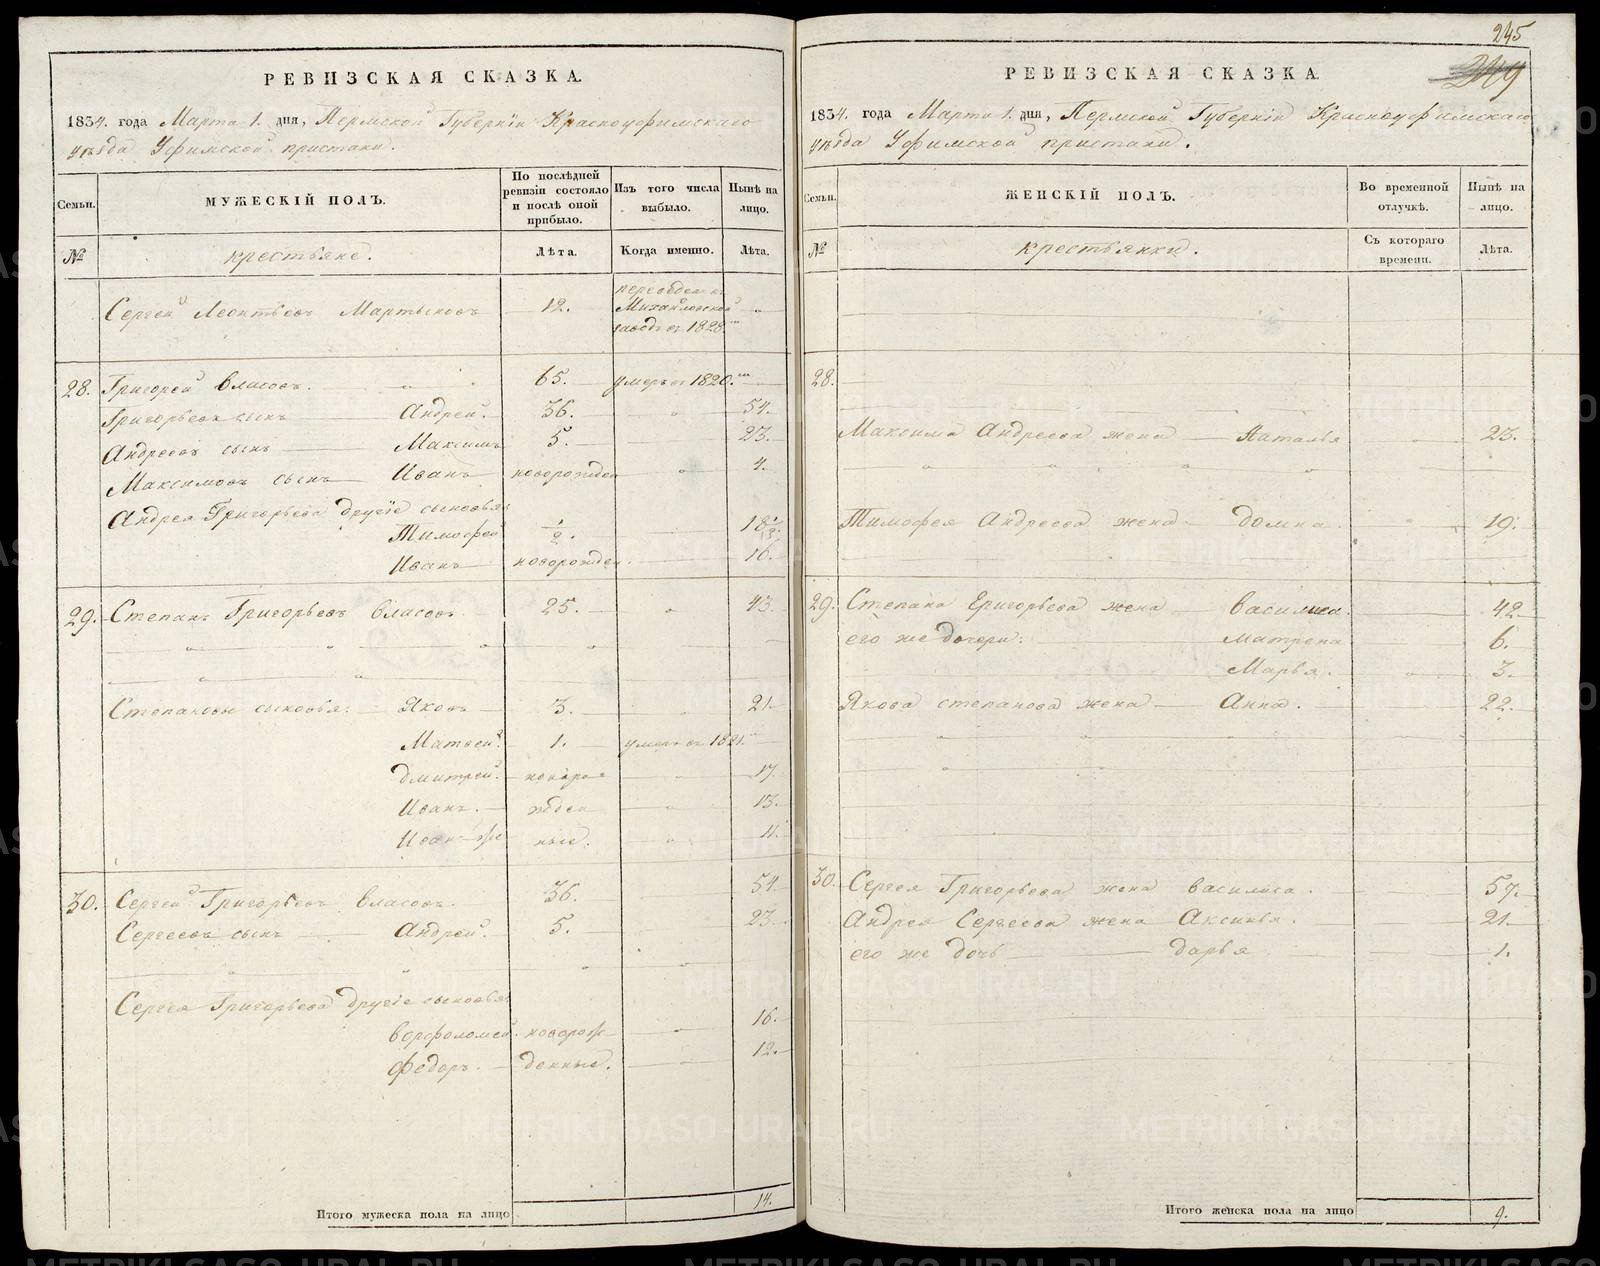 РЕВИЗСКАЯ СКАЗКА.
1834. года Марта 1. дня, Пермской Губернiи Красноуфимскаго
уѣзда Уфимской пристани.
Семьи.
МУЖЕСКIЙ ПОЛЪ.
По послѣдней ревизiи состояло и послѣ оной прибыло.
Изъ того числа выбыло.
Нынѣ на лицо.
№
крестьяне.
Лѣта.
Когда именно.
Лѣта.
Сергей Леонтьевъ Мартыновъ 12. переведенъ въ Михайловской заводъ въ 1828.мъ "
28. Григорей Власовъ. 65. умеръ въ 1820.мъ
Григорьевъ сынъ Андрей. 36. " 54.
Андреевъ сынъ Максимъ 5. 23.
Максимовъ сынъ Иванъ новорожден " 4.
Андрея Григорьева другiе сыновья
Тимофей 1/2. 18 1/2.
Иванъ новорожден. 16.
29. Степанъ Григорьевъ Власовъ 25. " 43.
Степановы сыновья: Яковъ 3. 21.
Матвей. 1. умеръ въ 1821.мъ
Дмитрей. новоро 17.
Иванъ. жден 13.
Иванъ же ные. 11.
30. Сергей Григорьевъ Власовъ 36. 54.
Сергеевъ сынъ Андрей. 5. 23.
Сергея Григорьева другiе сыновья
Ворфоломей. новорож 16.
Федоръ. денные. 12.
Итого мужеска пола на лицо 14.
245
249
РЕВИЗСКАЯ СКАЗКА.
1834. года Марта 1. дня, Пермской Губернiи Красноуфимскаго
уѣзда Уфимской пристани.
Семьи.
ЖЕНСКIЙ ПОЛЪ.
Во временной отлучкѣ.
Нынѣ на лицо.
№
крестьянки.
Съ котораго времени.
Лѣта.
28.
Максима Андреева жена Наталья 23.
Тимофея Андреева жена Домна 19.
29. Степана Григорьева жена Василиса. 42
его же дочери: Матрена 6.
Марья. 3.
Якова Степанова жена Анна. 22.
30. Сергея Григорьева жена Василиса. 57.
Андрея Сергеева жена Аксинья. 21.
его же дочь Дарья 1.
Итого женска пола на лицо 9.
METRIKI.GASO-URAL.RU